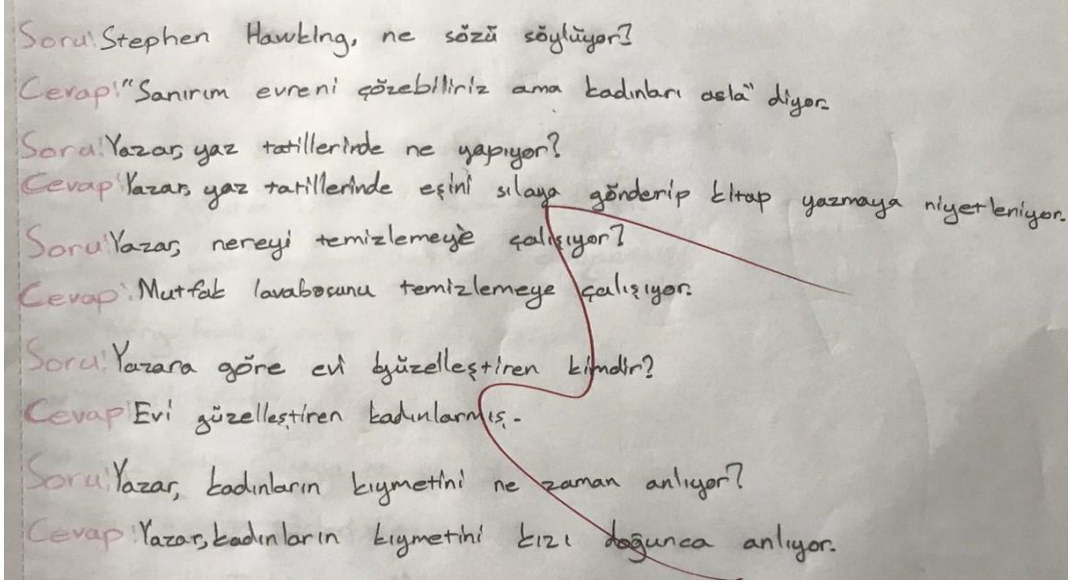 Soru: Stephen Hawking, ne sözü söylüyor?
Cevap: "Sanırım evreni çözebiliriz ama kadınları asla" diyor.
Soru: Yazar, yaz tatillerinde ne yapıyor?
Cevap: Yazar, yaz tatillerinde eşini sılaya gönderip kitap yazmaya niyetleniyor.
Soru: Yazar, nereyi temizlemeye çalışıyor?
Cevap: Mutfak lavabosunu temizlemeye çalışıyor.
Soru: Yazara göre evi güzelleştiren kimdir?
Cevap: Evi güzelleştiren kadınlarmış.
Soru: Yazar, kadınların kıymetini ne zaman anlıyor?
Cevap: Yazar, kadınların kıymetini kızı doğunca anlıyor.